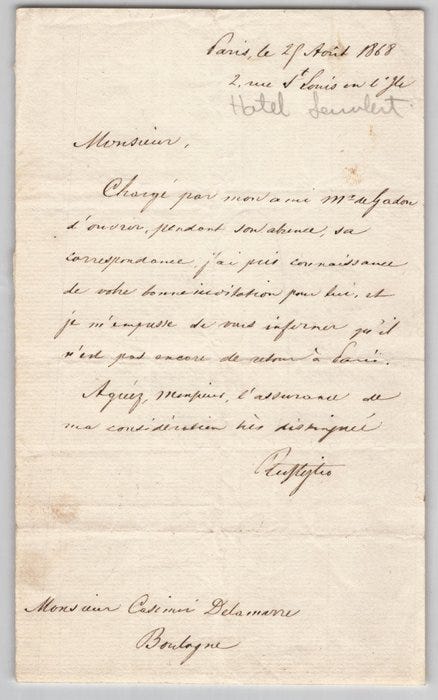 Paris, le 25 Août 1868
2, rue St Louis en l'Ile
Hotel
Monsieur,
Chargé par mon ami Mr de Gadon
d'ouvrir, pendant son absence, sa
correspondance, j'ai pris connaissance
de votre bonne invitation pour lui, et
je m'empresse de vous informer qu'il
n'est pas encore de retour à Paris.
Agréez, Monsieur, l'assurance de
ma considération très distinguée
Monsieur Casimir Delamarre
Boulogne